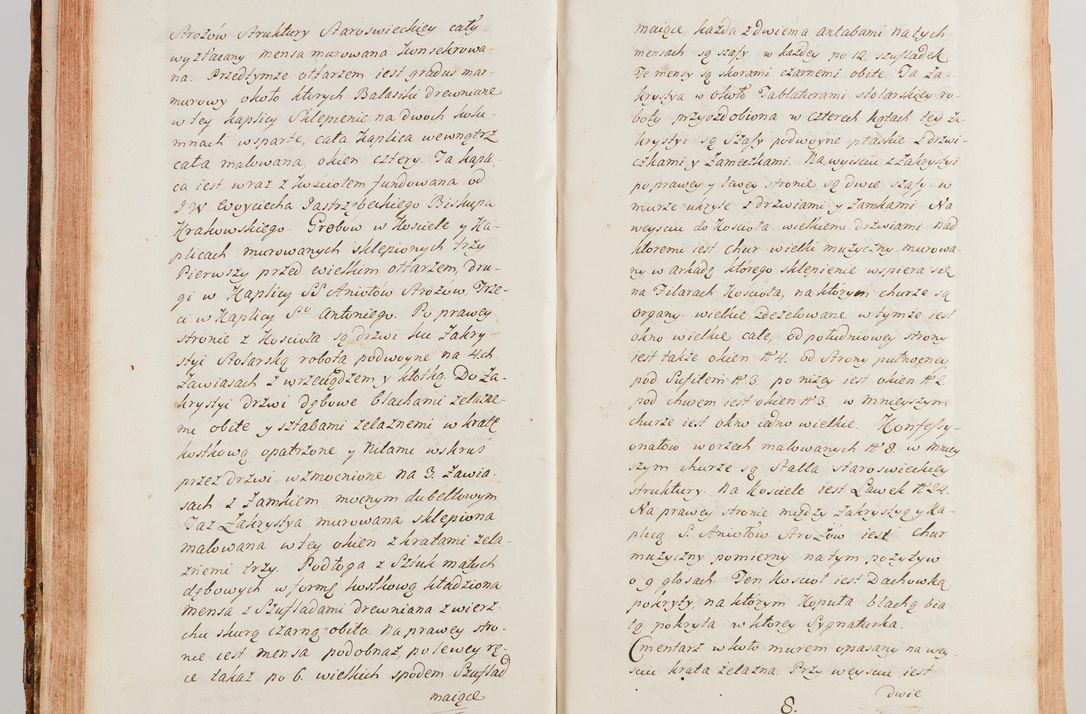 Arożów Struktury Staroswieckiey cały
wyzłacany mensa murowana konsekrowa-
na. Przedtymze ołtarzem iest gradus mar-
murowy około ktorych Balasiki drewniane
w tey kaplicy Sklepienie na dwoch kolu-
mnach wsparte, cała Kaplica wewnątrz
cała malowana, okien cztery. Ta kapli-
ca iest wraz z Kościołem fundowana od
J W Woyciecha Jastrzębskiego Biskupa
Krakowskiego. Grobów w Kosciele y Ka-
plicach murowanych sklepionych trzy
Pierwszy przed wielkim ołtarzem, dru-
gi w Kaplicy SS Aniołów Strożów, Trze-
ci w Kaplicy S⁰ Antoniego. Po prawey
stronie z Kościoła są drzwi ku Zakry-
styi Stolarską robotą podwoyne na 4ch
Zawiasach z wrzeciądzem y kłotką Do Za-
krystyi drzwi dębowe blachami żelazne-
mi obite y sztabami żelaznemi w kratę
kostkową opatrzone y Nitami wskruś
przez drzwi wzmocnione na 3. Zawia-
sach z Zamkiem mocnym dubeltowym
Taż Zakrystya murowana sklepiona
malowana w tey okien z kratami żela-
znemi trzy. Podłoga z Sztuk małych
dębowych w formę kostkową kładziona
mensa z Szufladami drewniana z wierz-
chu skurą czarną obita. Na prawey stro-
nie iest mensa podobnaż, po lewey rę-
ce także po 6. wielkich spodem Szuflad
maiące
maiące każda z dwiema antabami na tych
mensach są szafy w każdey po 12. szufladek
Te mensy są skorami czarnemi obite. Ta Za-
krystya w około Tablaturami stolarskiey ro-
boty przyozdobiona w czterech kątach tey Za-
krystyi są Szafy podwoyne ptaskie z drzwi-
czkami y Zameczkami. Na wyiściu z Zakrystyi
po prawey y lewey stronie są dwie szafy w
murze ukryte z drzwiami y Zamkami. Na
weysciu do Kościoła wielkiemi drzwiami nad
ktoremi iest chur wielki muzyczny murowa-
ny w arkadę ktorego sklepienie wspiera się
na Filarach Kościoła, na którym churze są
Organy wielkie zdezelowane w tymże iest
okno wielkie całe, od południowey strony
iest także okien N° 4. od Strony pułnocney
pod Sufitem N° 3 po niżey iest okien N° 2.
pod churem iest okien N° 3. w mnieyszym
churze iest okno iedno wielkie. Konfessy-
onałow w orzech malowanych N° 8. w mniey
szym churze są Stalla staroswieckiey
struktury. Na Kościele iest Ławek N° 24.
Na prawey stronie między Zakrystyą y ka-
plicą S. Aniołów Strożów iest chur
muzyczny pomierny na tym pozytyw
o 9 głosach. Ten kościoł iest Dachowką
pokryty, na którym Kopuła blachą bia-
łą pokryta w ktorey Sygnaturka.
Cmentarz w koło murem opasany na wey-
sciu krata żelazna. Przy weysciu iest
dwie
8.